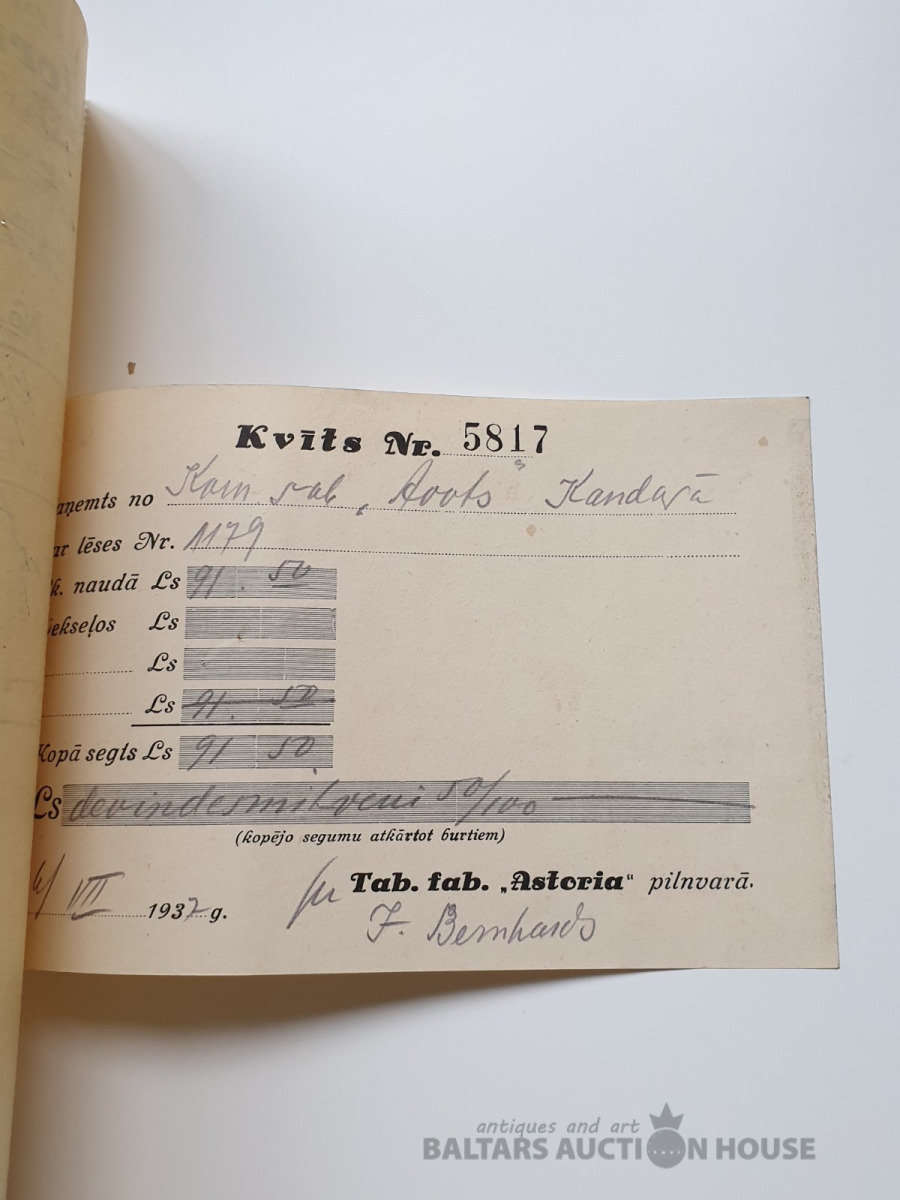 Kvīts Nr. 5817
aņemts no Kom sab „Avots" Kandavā
ar lēses Nr. 1179
k. naudā Ls 91. 50
ekseļos Ls
Ls
Ls 91. 50
Kopā segts Ls 91 50
Ls deviņdesmit veni 50/100
(kopējo segumu atkārtot burtiem)
VIII 1937 g.
Tab. fab. „Astoria" pilnvarā.
F. Bernhards
antiques and art
BALTARS AUCTION HOUSE